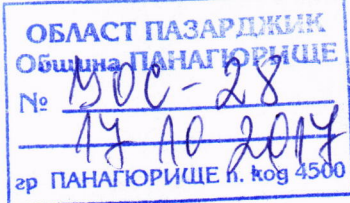 ОБЛАСТ ПАЗАРДЖИК
Община ПАНАГЮРИЩЕ
№ УОС-28
17 10 2017
гр ПАНАГЮРИЩЕ п. код 4500